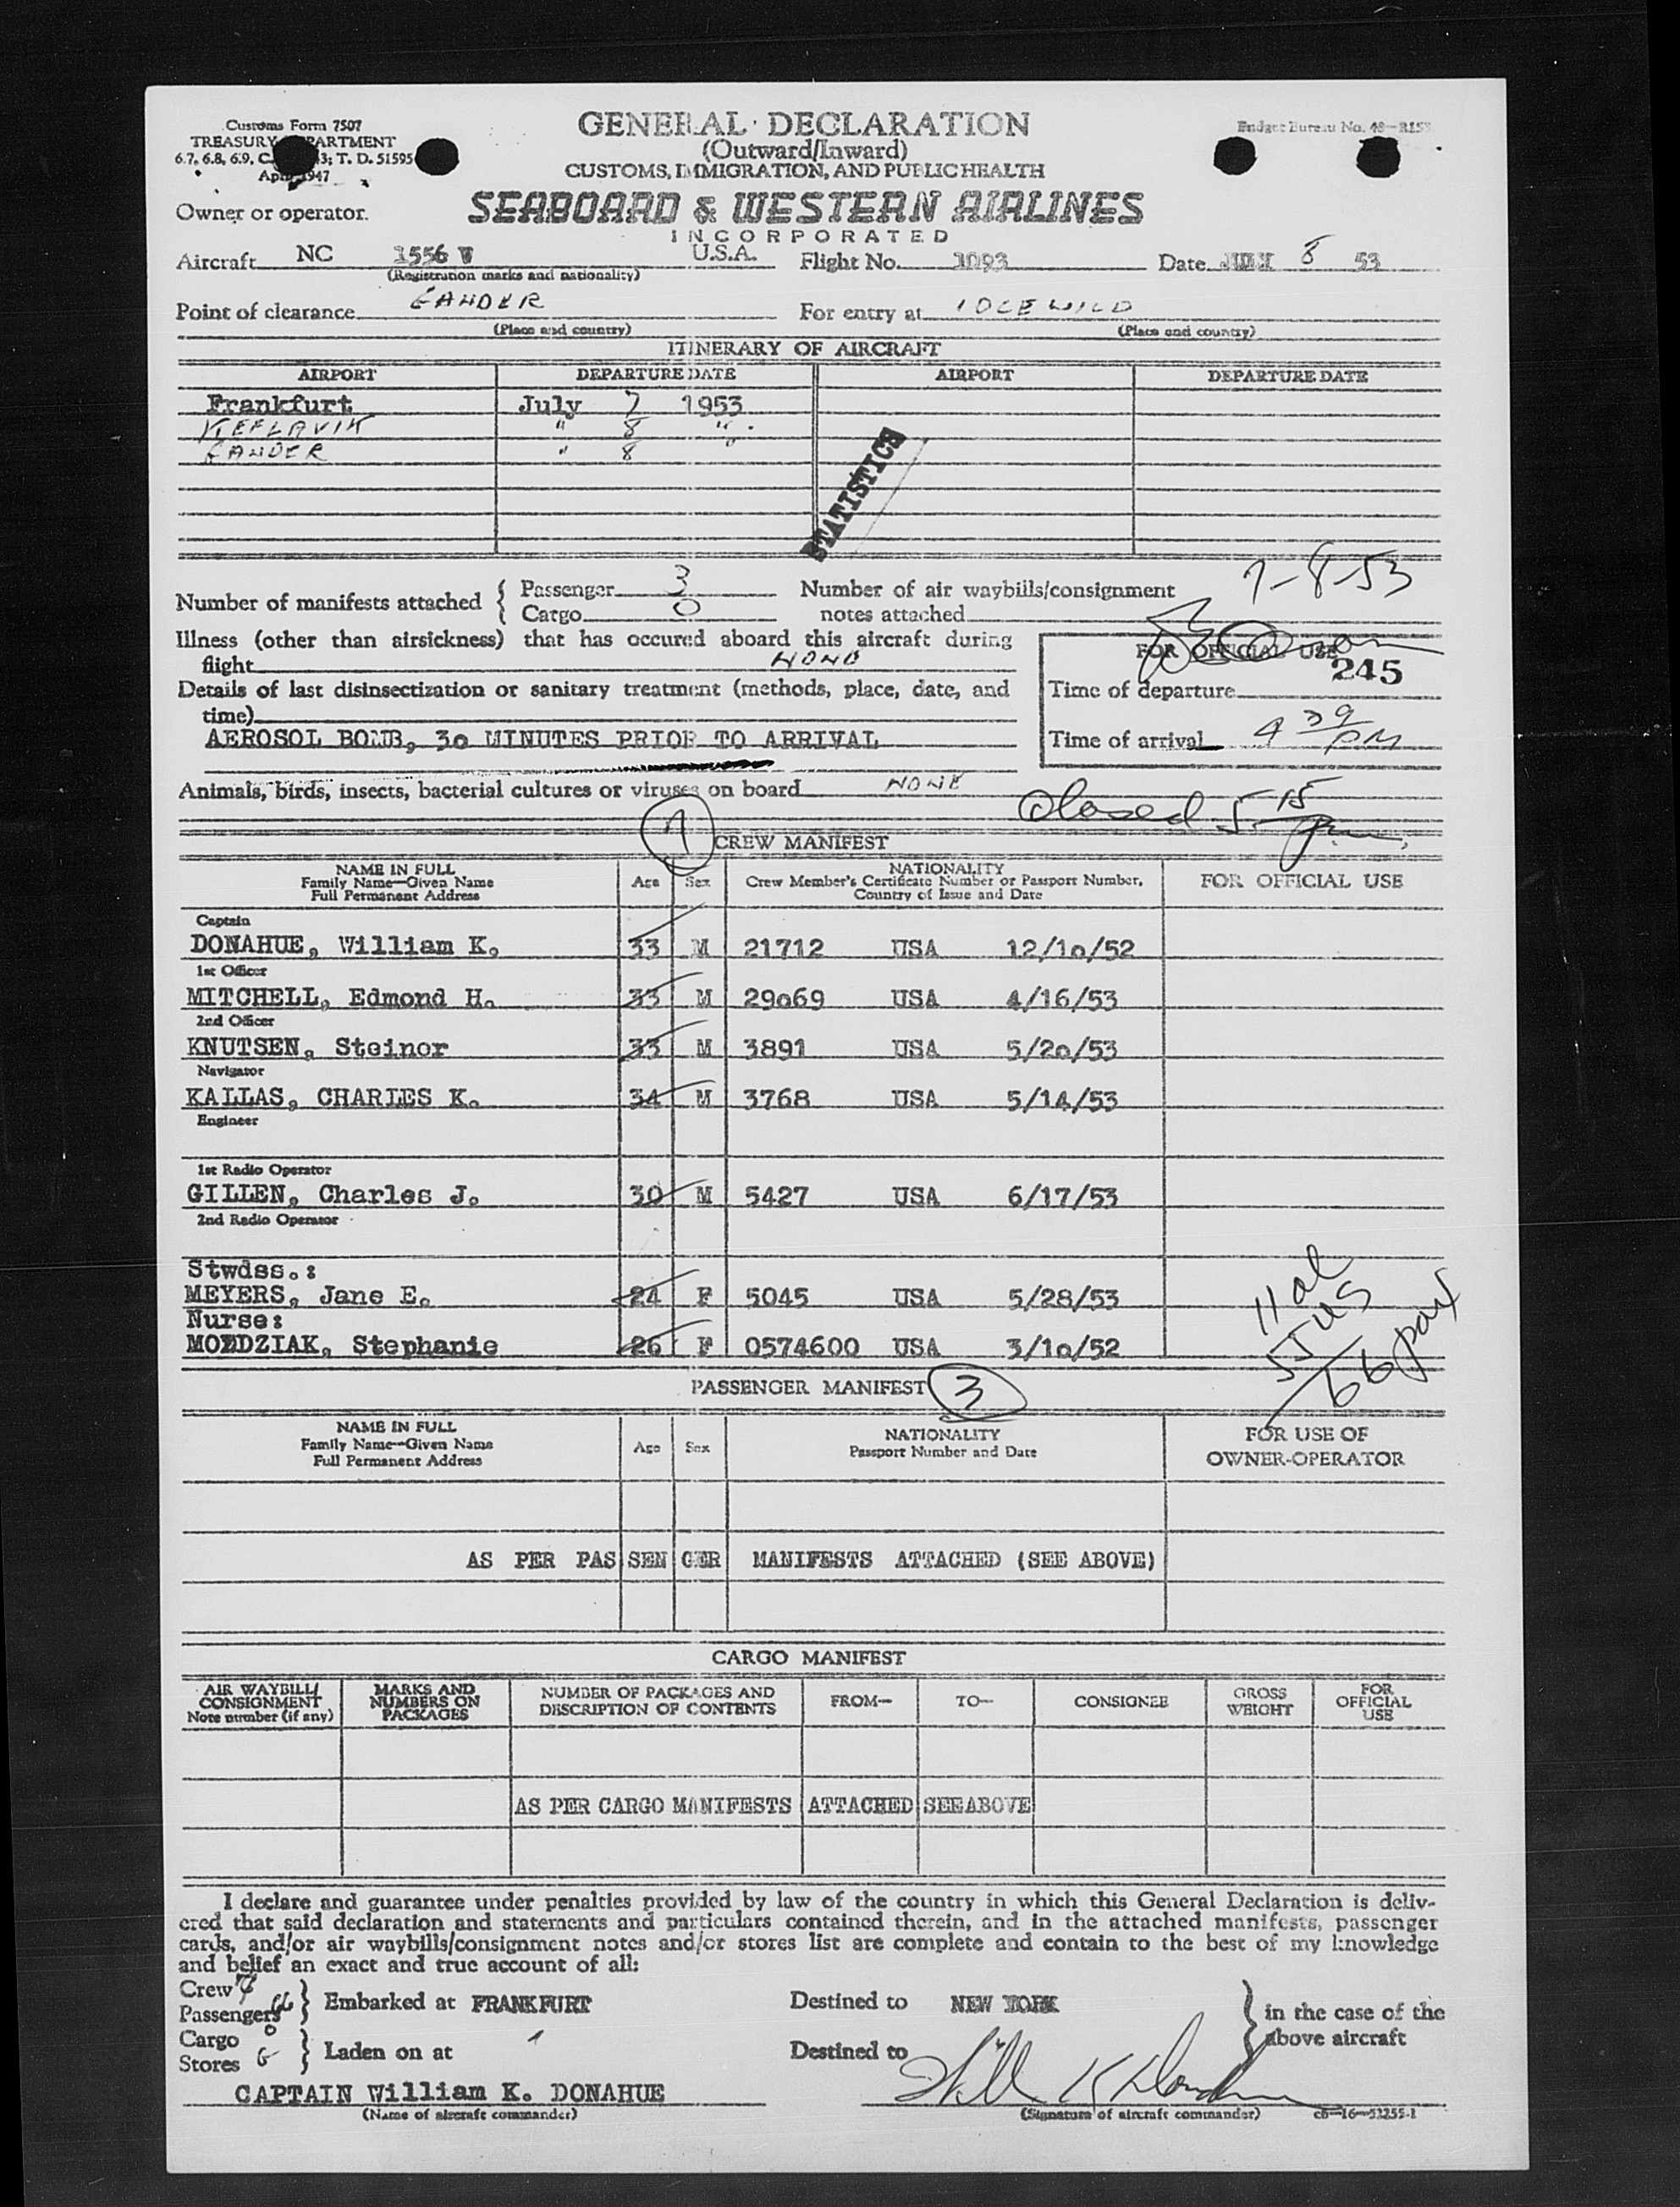 Customs Form 7507
TREASURY
6.7, 6.8, 6.9, T. D. 51595
GENERAL DECLARATION
(Outward/Inward)
CUSTOMS, IMMIGRATION, AND PUBLIC HEALTH
Budget Bureau No.
Owner or operator.
SEABOARD & WESTERN AIRLINES
INCORPORATED
Aircraft NC 1556 V U.S.A. Flight No. 1093 Date JULY 8 53
(Registration marks and nationality)
Point of clearance GANDER For entry at IDLEWILD
(Place and country) (Place and country)
ITINERARY OF AIRCRAFT
AIRPORT DEPARTURE DATE AIRPORT DEPARTURE DATE
Frankfurt July 7 1953
KEFLAVIK " 8 "
GANDER " 8 "
STATISTICS
7-8-53
Number of manifests attached { Passenger 3 Number of air waybills/consignment
{ Cargo 0 notes attached
Illness (other than airsickness) that has occured aboard this aircraft during
flight NONE
FOR OFFICIAL USE
245
Details of last disinsectization or sanitary treatment (methods, place, date, and
time)
Time of departure
AEROSOL BOMB, 3o MINUTES PRIOR TO ARRIVAL
Time of arrival 4 39 PM
Animals, birds, insects, bacterial cultures or viruses on board NONE
Closed 5 15 pm
7 CREW MANIFEST
NAME IN FULL
Family Name—Given Name
Full Permanent Address
Age Sex
NATIONALITY
Crew Member's Certificate Number or Passport Number,
Country of Issue and Date
FOR OFFICIAL USE
Captain
DONAHUE, William K. 33 M 21712 USA 12/1o/52
1st Officer
MITCHELL, Edmond H. 33 M 29o69 USA 4/16/53
2nd Officer
KNUTSEN, Steinor 33 M 3891 USA 5/2o/53
Navigator
KALLAS, CHARLES K. 34 M 3768 USA 5/14/53
Engineer
1st Radio Operator
GILLEN, Charles J. 30 M 5427 USA 6/17/53
2nd Radio Operator
Stwdss.:
MEYERS, Jane E. 24 F 5045 USA 5/28/53
Nurse:
Stephanie 26 F 0574600 USA 3/1o/52
11 al
55 US
66 pax
PASSENGER MANIFEST 3
NAME IN FULL
Family Name—Given Name
Full Permanent Address
Age Sex
NATIONALITY
Passport Number and Date
FOR USE OF
OWNER-OPERATOR
AS PER PASSENGER MANIFESTS ATTACHED (SEE ABOVE)
CARGO MANIFEST
AIR WAYBILL/
CONSIGNMENT
Note number (if any)
MARKS AND
NUMBERS ON
PACKAGES
NUMBER OF PACKAGES AND
DESCRIPTION OF CONTENTS
FROM— TO— CONSIGNEE
GROSS
WEIGHT
FOR
OFFICIAL
USE
AS PER CARGO MANIFESTS ATTACHED SEE ABOVE
I declare and guarantee under penalties provided by law of the country in which this General Declaration is deliv-
ered that said declaration and statements and particulars contained therein, and in the attached manifests, passenger
cards, and/or air waybills/consignment notes and/or stores list are complete and contain to the best of my knowledge
and belief an exact and true account of all:
Crew 7
Passengers 66 } Embarked at FRANKFURT Destined to NEW YORK } in the case of the
Cargo 0 above aircraft
Stores } Laden on at Destined to
CAPTAIN William K. DONAHUE
(Name of aircraft commander) (Signature of aircraft commander) 16—52255-1